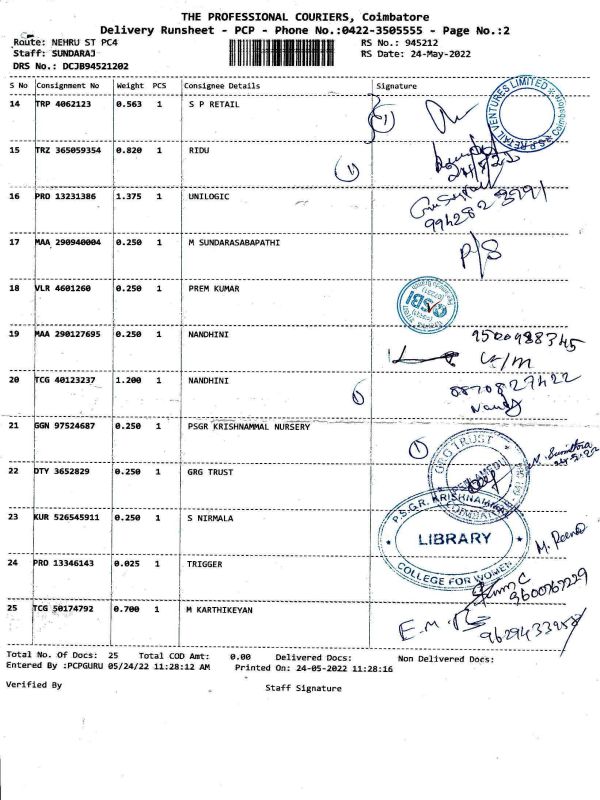 THE PROFESSIONAL COURIERS, Coimbatore
Delivery Runsheet - PCP - Phone No.:0422-3505555 - Page No.:2
Route: NEHRU ST PC4 RS No.: 945212
Staff: SUNDARAJ RS Date: 24-May-2022
DRS No.: DCJB94521202
S No Consignment No Weight PCS Consignee Details Signature
14 TRP 4062123 0.563 1 S P RETAIL
S P RETAIL VENTURES LIMITED Coimbatore
15 TRZ 365059354 0.820 1 RIDU
16 PRO 13231386 1.375 1 UNILOGIC
17 MAA 290940004 0.250 1 M SUNDARASABAPATHI P/S
18 VLR 4601260 0.250 1 PREM KUMAR
SBI
19 MAA 290127695 0.250 1 NANDHINI 9500988345
20 TCG 40123237 1.200 1 NANDHINI 8870827422
21 GGN 97524687 0.250 1 PSGR KRISHNAMMAL NURSERY
GRG TRUST
22 DTY 3652829 0.250 1 GRG TRUST
P.S.G.R. KRISHNAMMAL
23 KUR 526545911 0.250 1 S NIRMALA
LIBRARY
24 PRO 13346143 0.025 1 TRIGGER
COLLEGE FOR WOMEN
25 TCG 50174792 0.700 1 M KARTHIKEYAN
Total No. Of Docs: 25 Total COD Amt: 0.00 Delivered Docs: Non Delivered Docs:
Entered By :PCPGURU 05/24/22 11:28:12 AM Printed On: 24-05-2022 11:28:16
Verified By Staff Signature